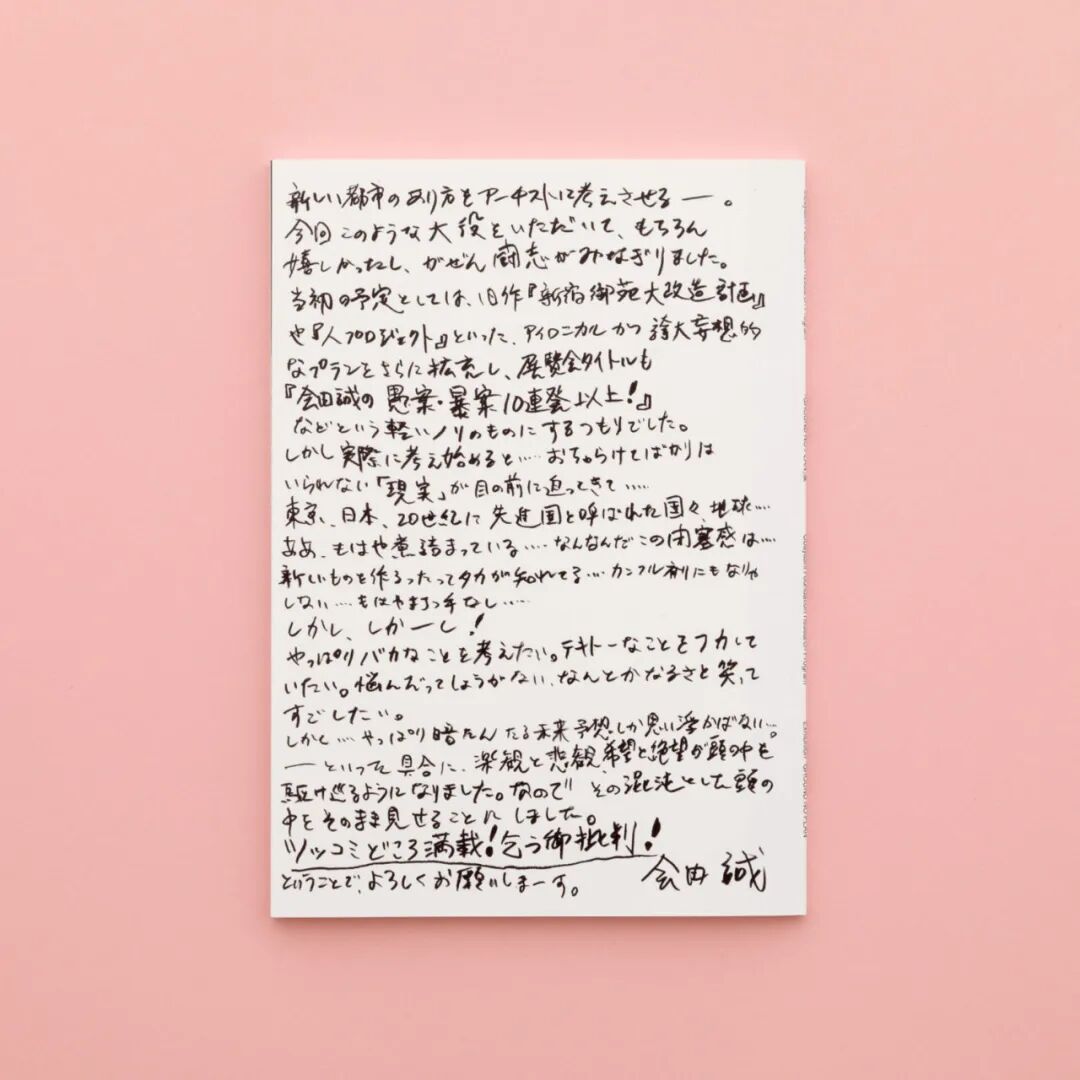 新しい都市のあり方をアーチストに考えさせる—。
今回このような大役をいただいて、もちろん
嬉しかったし、がぜん闘志がみなぎりました。
当初の予定としては、旧作『新宿御苑大改造計画』
や『人プロジェクト』といった、アイロニカルかつ誇大妄想的
なプランをさらに拡充し、展覧会タイトルも
『会田誠の愚案・暴案10連発以上！』
などという軽いノリのものにするつもりでした。
しかし実際に考え始めると……おちゃらけてばかりは
いられない「現実」が目の前に迫ってきて……
東京、日本、20世紀に先進国と呼ばれた国々、地球…
ああ、もはや煮詰まっている……なんなんだこの閉塞感は…
新しいものを作るったってタカが知れてる…カンフル剤にもなりゃ
しない……もはや打つ手なし……
しかし、しかーし！
やっぱりバカなことを考えたい。テキトーなことをフカして
いたい。悩んだってしょうがない、なんとかなるさと笑って
すごしたい。
しかし…やっぱり暗たんたる未来予想しか思い浮かばない…。
—といった具合に、楽観と悲観、希望と絶望が頭の中を
駆け巡るようになりました。なので その混沌とした頭の
中をそのまま見せることにしました。
ツッコミどころ満載！乞う御批判！
ということで、よろしくお願いしまーす。
会田誠